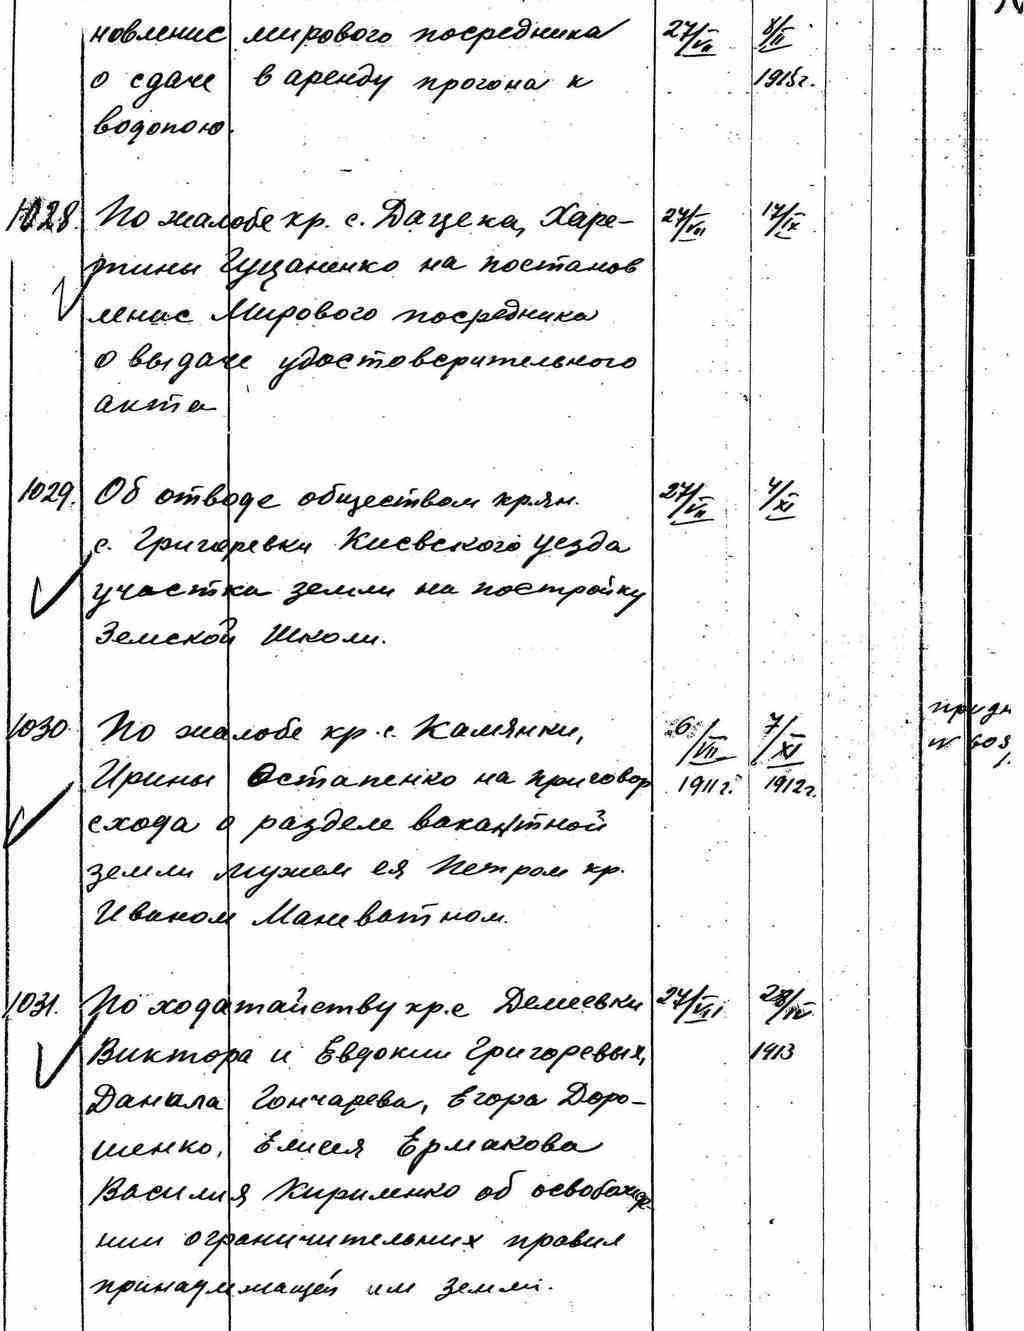 новление мирового посредника 27/VII 8/II
о сдаче в аренду прогона к 1915г.
водопою.
1028. По жалобе кр. с. Дацека, Харе- 27/VII 17/IX
тины Гуцаненко на постанов
ление Мирового посредника
о выдаче удостоверительного
акта
1029. Об отводе обществом кр.ян. 27/VII 4/XI
с. Григоревки Киевского уезда
участка земли на постройку
Земской Школи.
1030 По жалобе кр. с. Камянки, 6/VII 7/XI
Ирины Остапенко на приговор 1911г. 1912г.
схода о разделе вакантной
земли мужем ея Петром кр.
Иваном Маневатном.
1031. По ходатайству кр.с Демеевки 27/VII 28/IV
Виктора и Евдокии Григоревых, 1913
Данила Гончарева, Егора Доро-
шенко, Елисея Ермакова
Василия Кириленко об освобожде-
нии ограничительних правил
принадлежащей им земли.